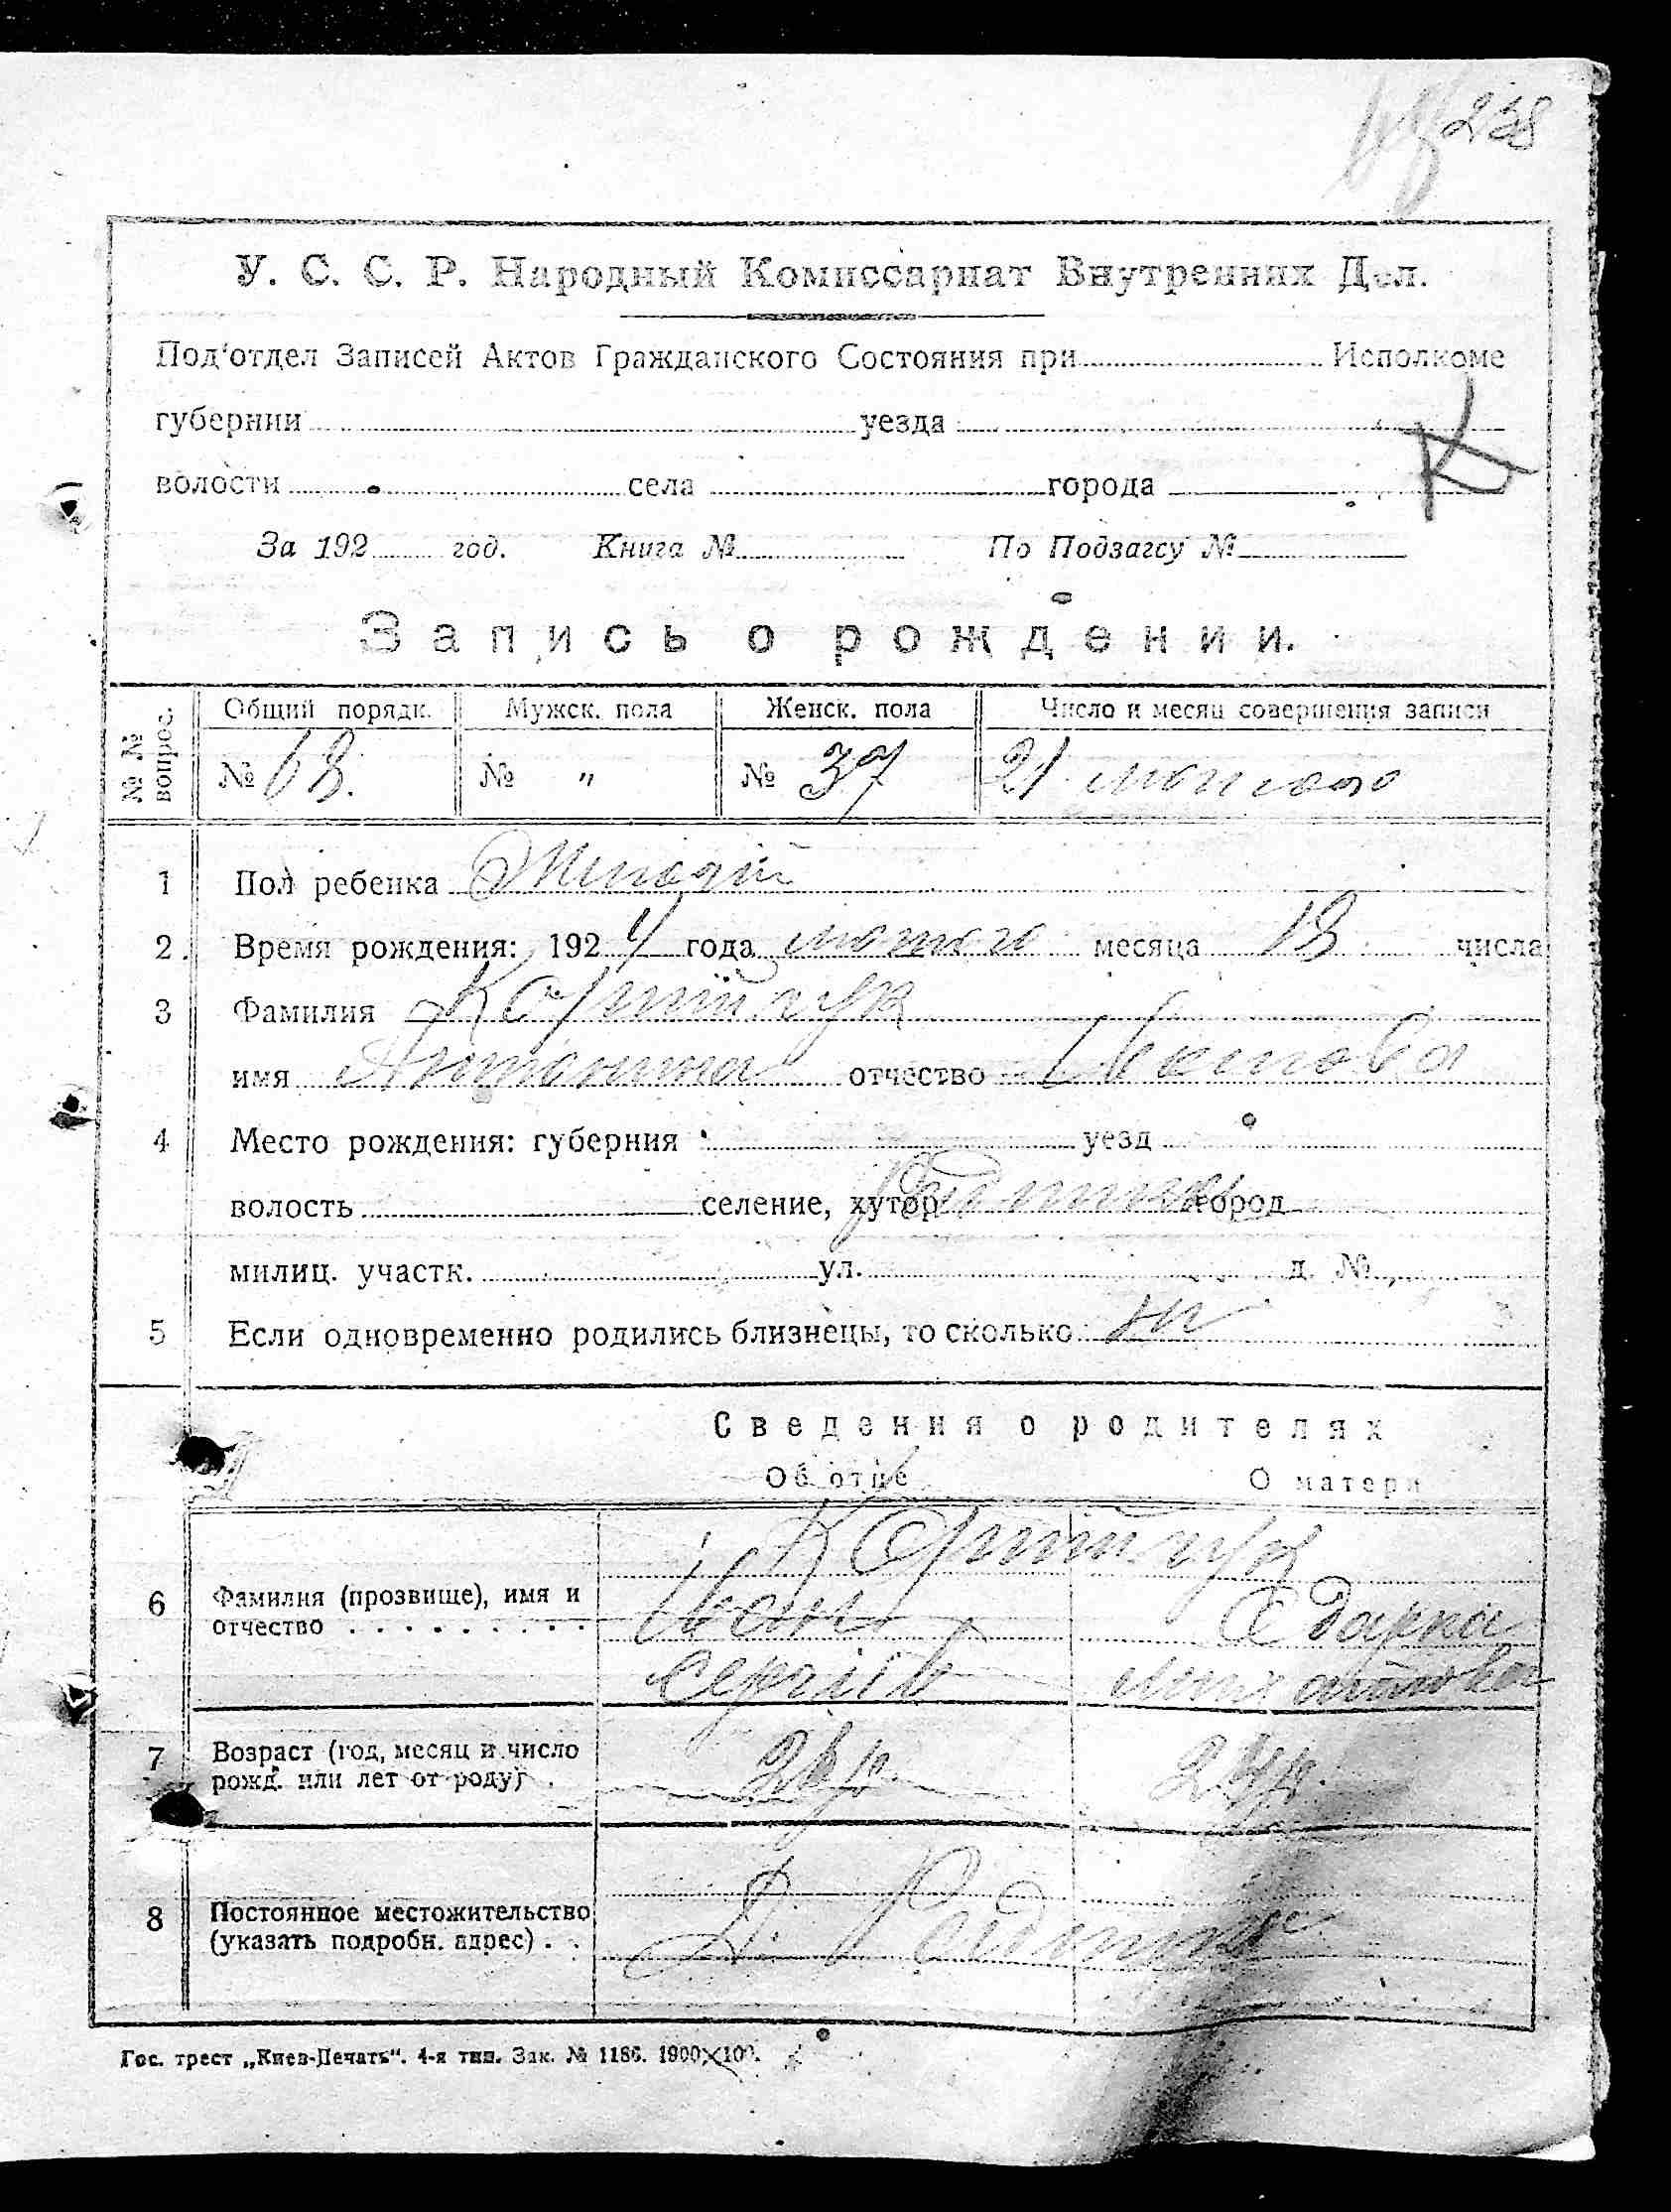 238
У. С. С. Р. Народный Комиссариат Внутренних Дел.
Под'отдел Записей Актов Гражданского Состояния при Исполкоме
губернии уезда
волости села города
К
За 192 год. Книга № По Подзагсу №
Запись о рождении.
№ № вопрос. Общий порядк. Мужск. пола Женск. пола Число и месяц совершения записи
№ 68. № " № 37 21 лютого
1 Пол ребенка Жіночий
2. Время рождения: 1924 года лютого месяца 18 числа
3 Фамилия Корнійчук
имя Антонина отчество Іванова
4 Место рождения: губерния уезд
волость селение, хутор город
милиц. участк. ул. д. №
5 Если одновременно родились близнецы, то сколько ні
Сведения о родителях
Об отце О матери
Корнійчук
6 Фамилия (прозвище), имя и отчество
Іван Одарка
Сергіїв
7 Возраст (год, месяц и число рожд. или лет от роду)
8 Постоянное местожительство (указать подробн. адрес)
Гос. трест „Киев-Печать“. 4-я тип. Зак. № 1186. 1900×100.